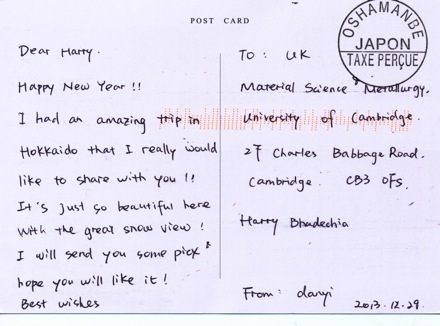 POST CARD
OSHAMANBE
JAPON
TAXE PERÇUE
Dear Harry.
Happy New Year !!
I had an amazing trip in
Hokkaido that I really would
like to share with you !!
It's just so beautiful here
with the great snow view !
I will send you some pics &
hope you will like it !
Best wishes
To : UK
Material Science & Metallurgy.
University of Cambridge.
27 Charles Babbage Road.
Cambridge. CB3 0FS.
Harry Bhadeshia
From : danyi
2013.12.29.